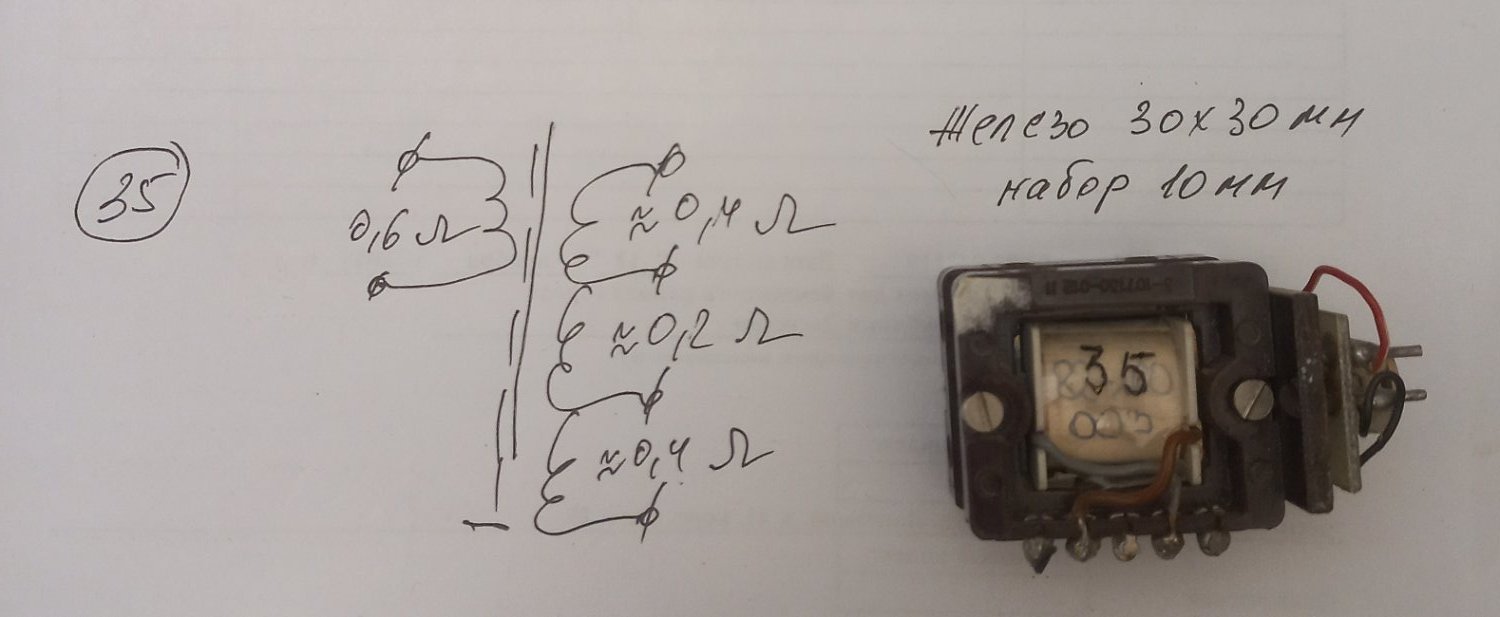 35
0,6 Ω
≈0,4 Ω
≈0,2 Ω
≈0,4 Ω
Железо 30х30мм
набор 10мм
35